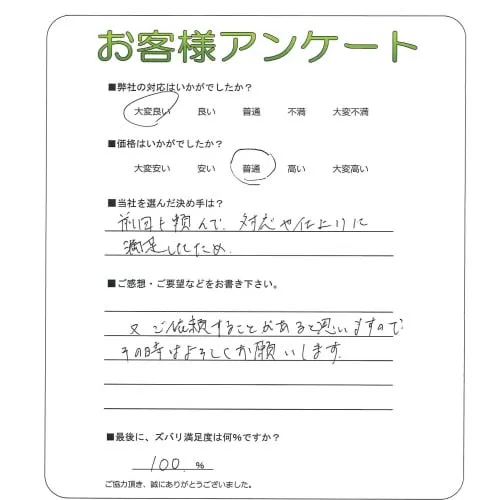 お客様アンケート
■弊社の対応はいかがでしたか?
大変良い 良い 普通 不満 大変不満
■価格はいかがでしたか?
大変安い 安い 普通 高い 大変高い
■当社を選んだ決め手は?
前回も頼んで、対応や仕上りに
満足したため。
■ご感想・ご要望などをお書き下さい。
又ご依頼することがあると思いますので
その時はよろしくお願いします。
■最後に、ズバリ満足度は何%ですか?
100. %
ご協力頂き、誠にありがとうございました。